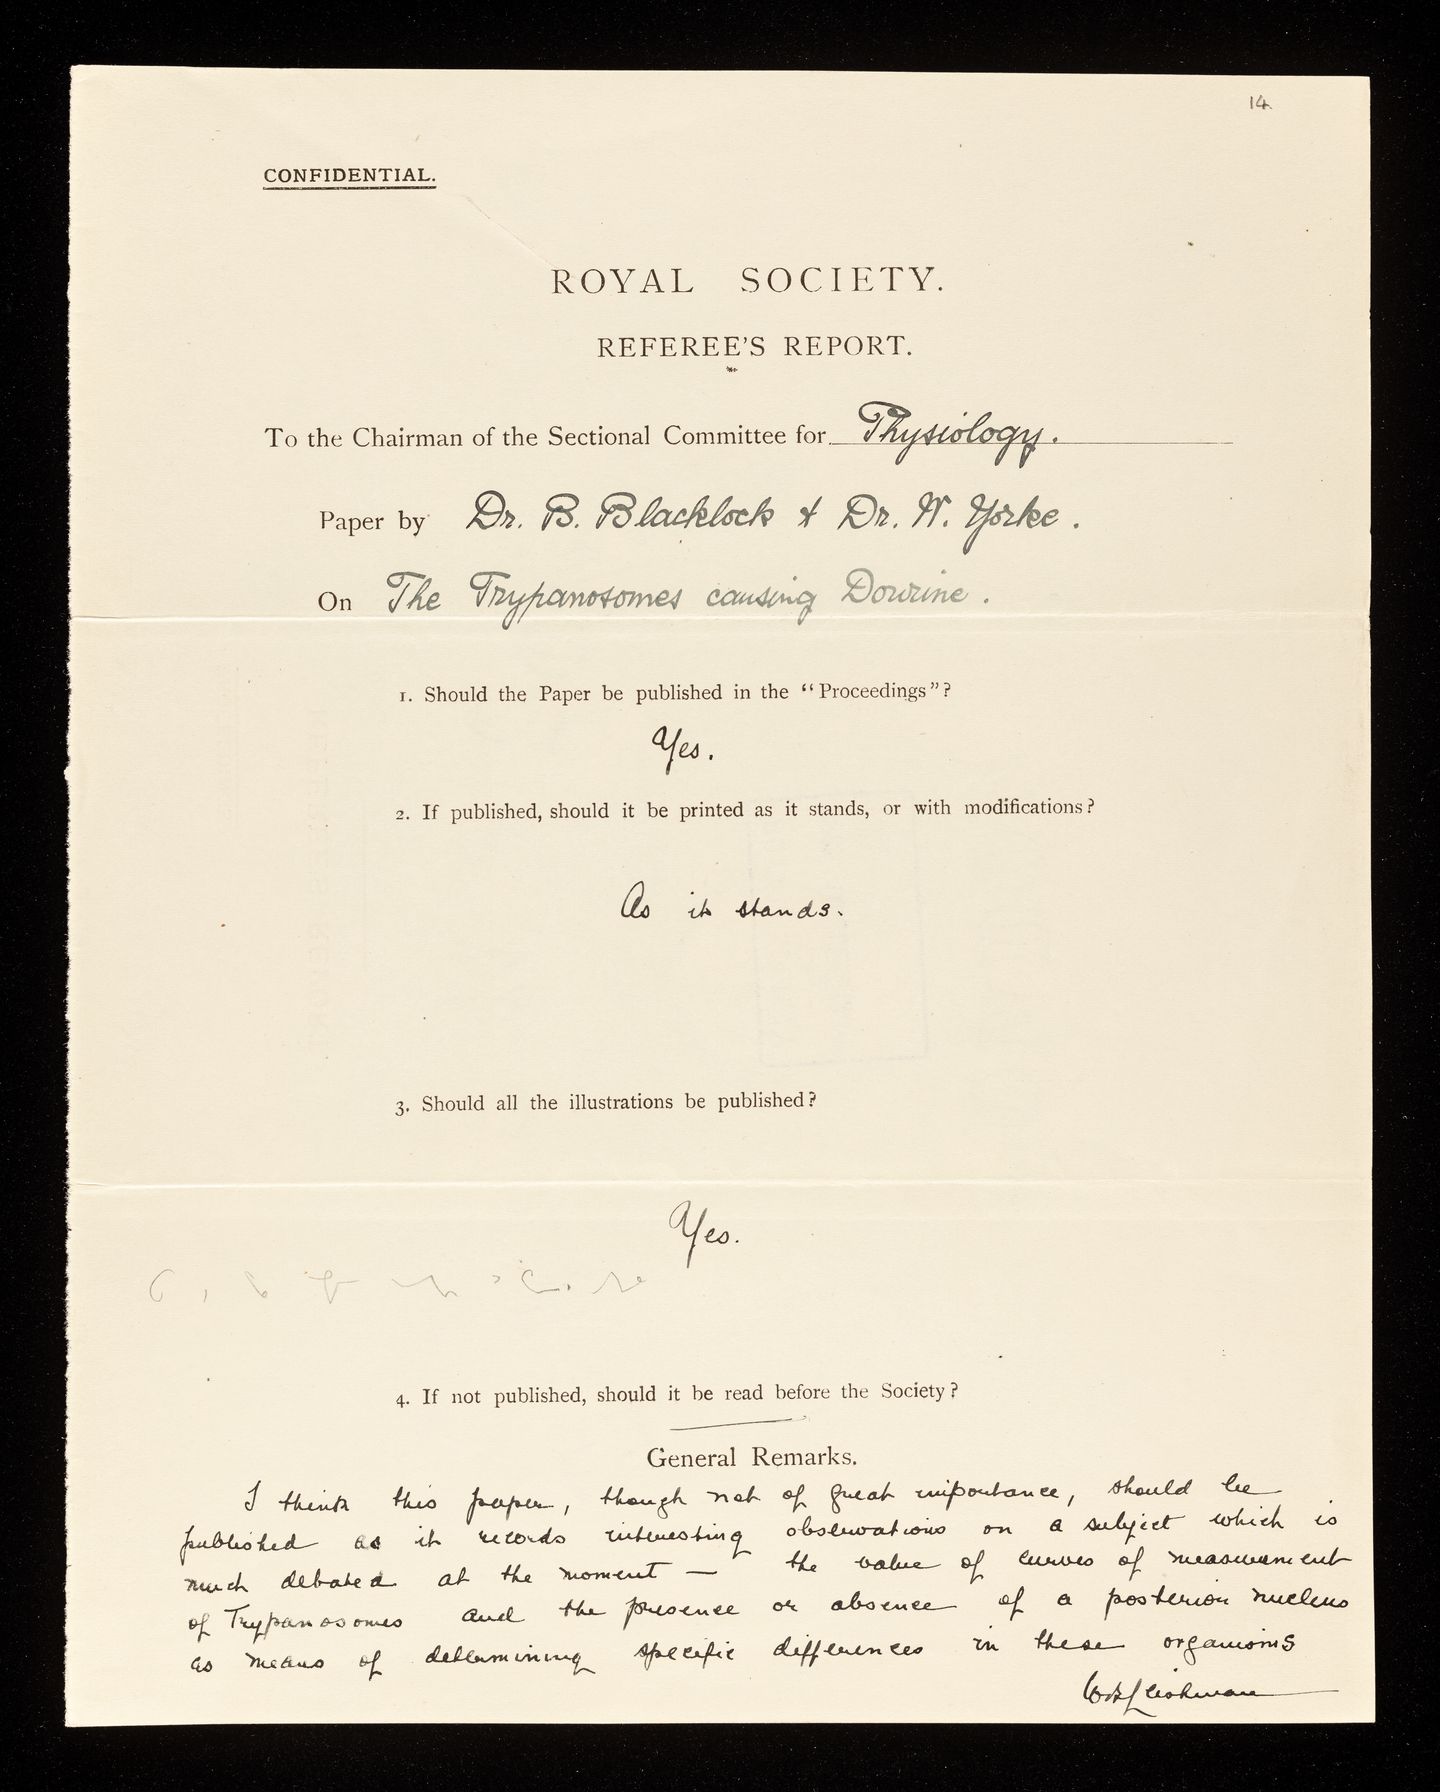 14
CONFIDENTIAL.
ROYAL SOCIETY.
REFEREE'S REPORT.
To the Chairman of the Sectional Committee for Physiology.
Paper by Dr. B. Blacklock & Dr. W. Yorke.
On The Trypanosomes causing Dourine.
1. Should the Paper be published in the "Proceedings"?
Yes.
2. If published, should it be printed as it stands, or with modifications?
As it stands.
3. Should all the illustrations be published?
Yes.
4. If not published, should it be read before the Society?
General Remarks.
I think this paper, though not of great importance, should be
published as it records interesting observations on a subject which is
much debated at the moment — the value of curves of measurement
of Trypanosomes and the presence or absence of a posterior nucleus
as means of determining specific differences in these organisms
WBLeishman